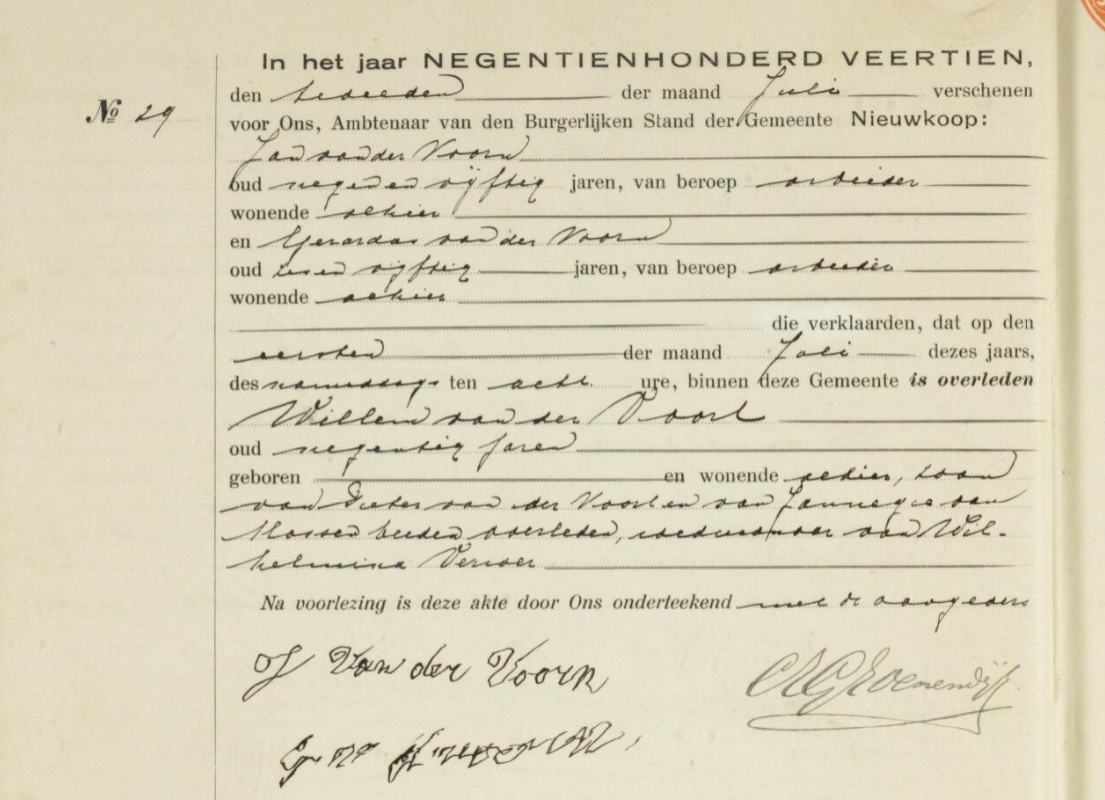 In het jaar NEGENTIENHONDERD VEERTIEN,
den tweeden der maand Juli verschenen
No 29
voor Ons, Ambtenaar van den Burgerlijken Stand der Gemeente Nieuwkoop:
Jan van der Voorn
oud negen en vijftig jaren, van beroep arbeider
wonende alhier
en Gerardus van der Voorn
oud zes en vijftig jaren, van beroep arbeider
wonende alhier
die verklaarden, dat op den
eersten der maand Juli dezes jaars,
des namiddags ten acht ure, binnen deze Gemeente is overleden
Willem van der Voort
oud negentig jaren
geboren en wonende alhier, zoon
van Pieter van der Voort en van Jannegie van
beiden overleden, weduwnaar van Wil-
helmina Verweer
Na voorlezing is deze akte door Ons onderteekend met de aangevers
J Van der Voorn
Groenendijk